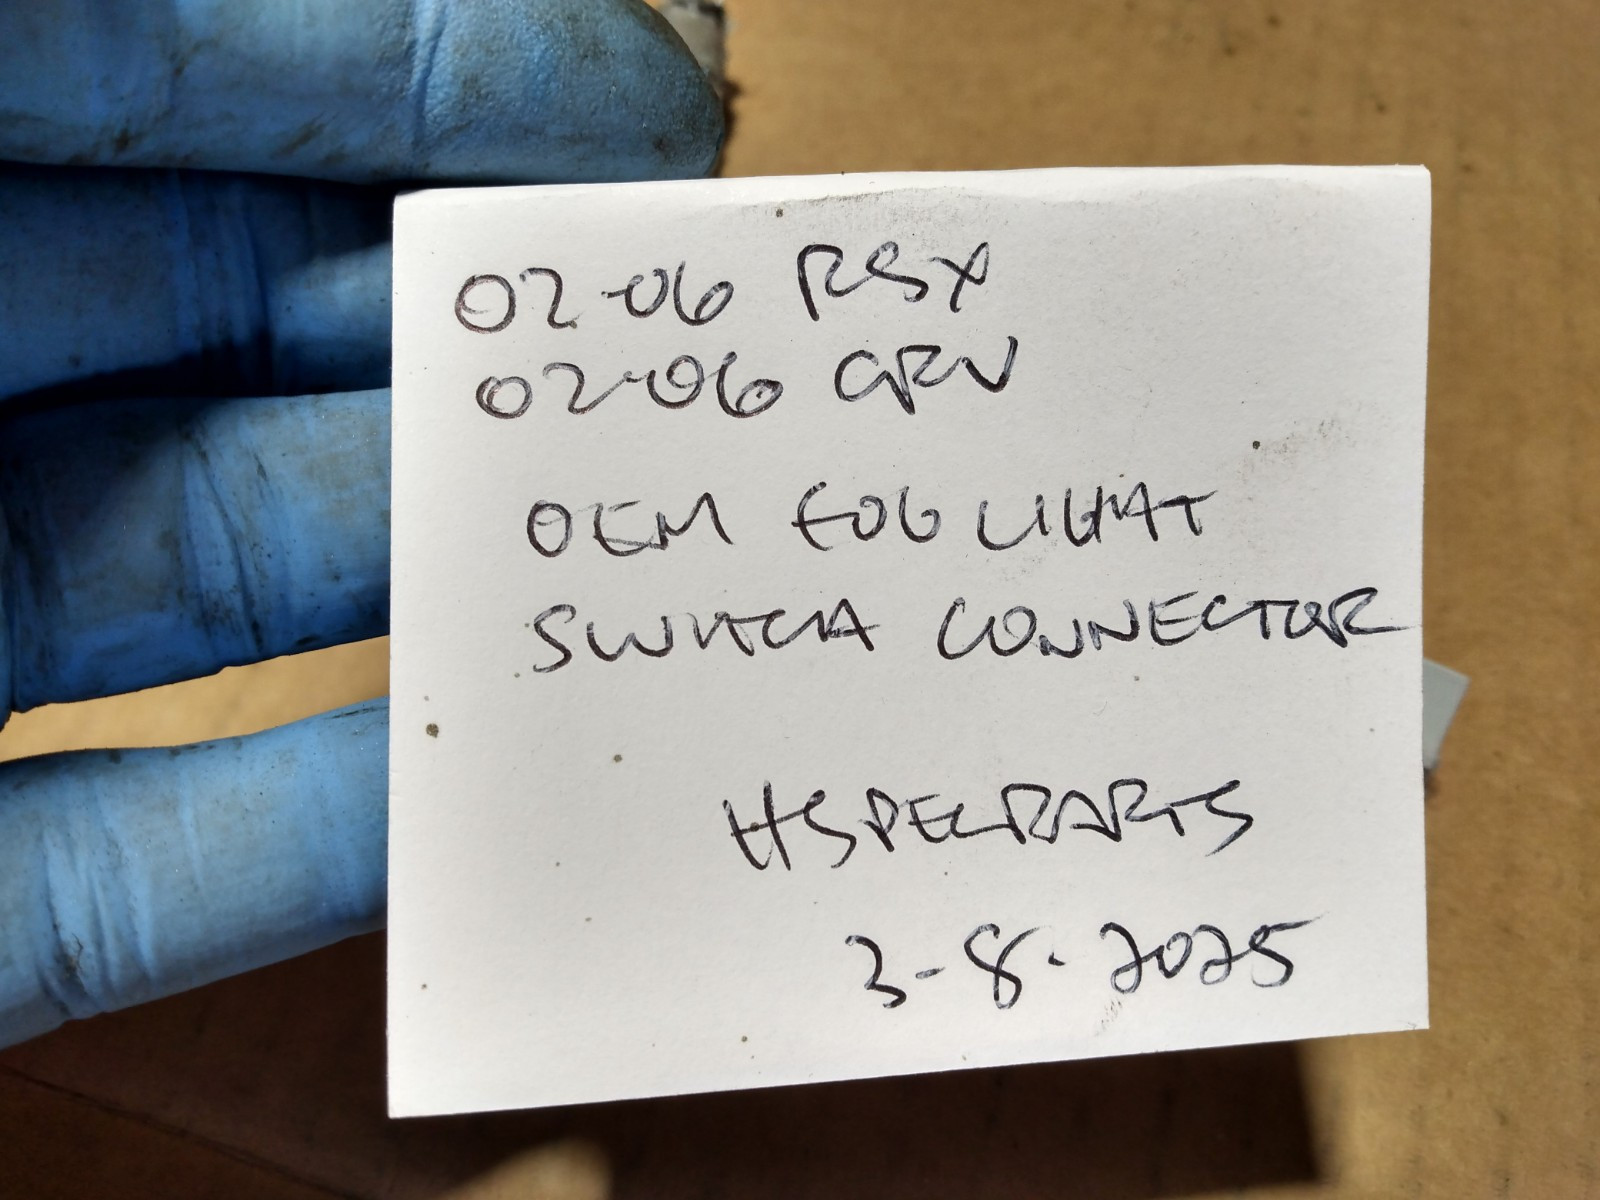 02-06 RSX
02-06 CRV
OEM FOG LIGHT
SWITCH CONNECTOR
HSPECPARTS
3-8-2025